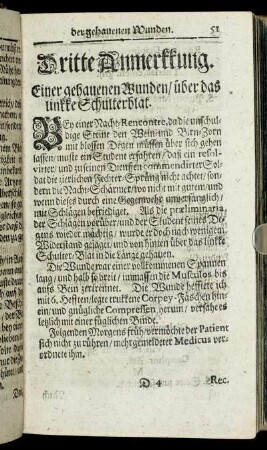 der gehauenen Wunden. 51
Dritte Anmerckung.
Einer gehauenen Wunden/ über das
lincke Schulterblat.
BEy einer Nacht-Rencontre, da die unschul-
dige Steine den Wein und Bier-Zorn
mit blossen Degen müssen über sich gehen
lassen/ muste ein Student erfahren/ daß ein resol-
virter/ und zu seinen Diensten commendirter Sol-
dat die zierlichen Fechter-Sprüng nicht achtet/ son-
dern die Nacht-Scharmützel/ wo nicht mit gutem/ und
wenn dieses durch eine Gegenwehr unverfänglich/
mit Schlägen befriediget. Als die præliminaria
der Schlägen vorüber/ und der Student eines De-
gens wieder mächtig/ wurde er doch nach wenigem
Widerstand gejaget/ und von hinten über das lincke
Schulter-Blat in die Länge gehauen.
Die Wunde war einer vollkommenen Spannen
lang/ und halb so breit/ immassen die Musculos bis
aufs Bein zertrennet. Die Wunde hefftete ich
mit 6. Hefften/ legte truckene Corpey-Fäschen hin-
ein/ und gnügliche Compressen herum/ verfahe es
letzlich mit einer füglichen Binde.
Folgenden Morgens früh vermöchte der Patient
sich nicht zu rühren/ mehrgemeldeter Medicus ver-
ordnete ihm.
D 4 Rec.